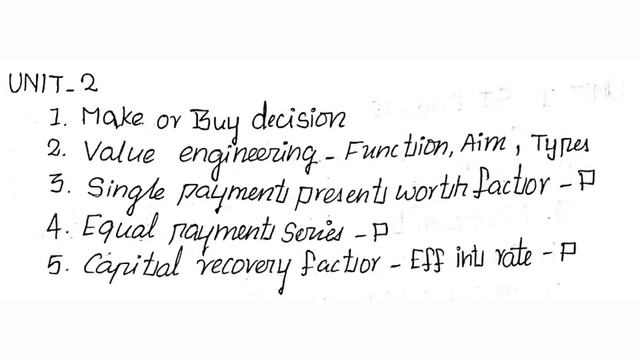 UNIT-2
1. Make or Buy decision
2. Value engineering - Function, Aim, Types
3. Single payment present worth factor - P
4. Equal payment series - P
5. Capital recovery factor - Eff int rate - P